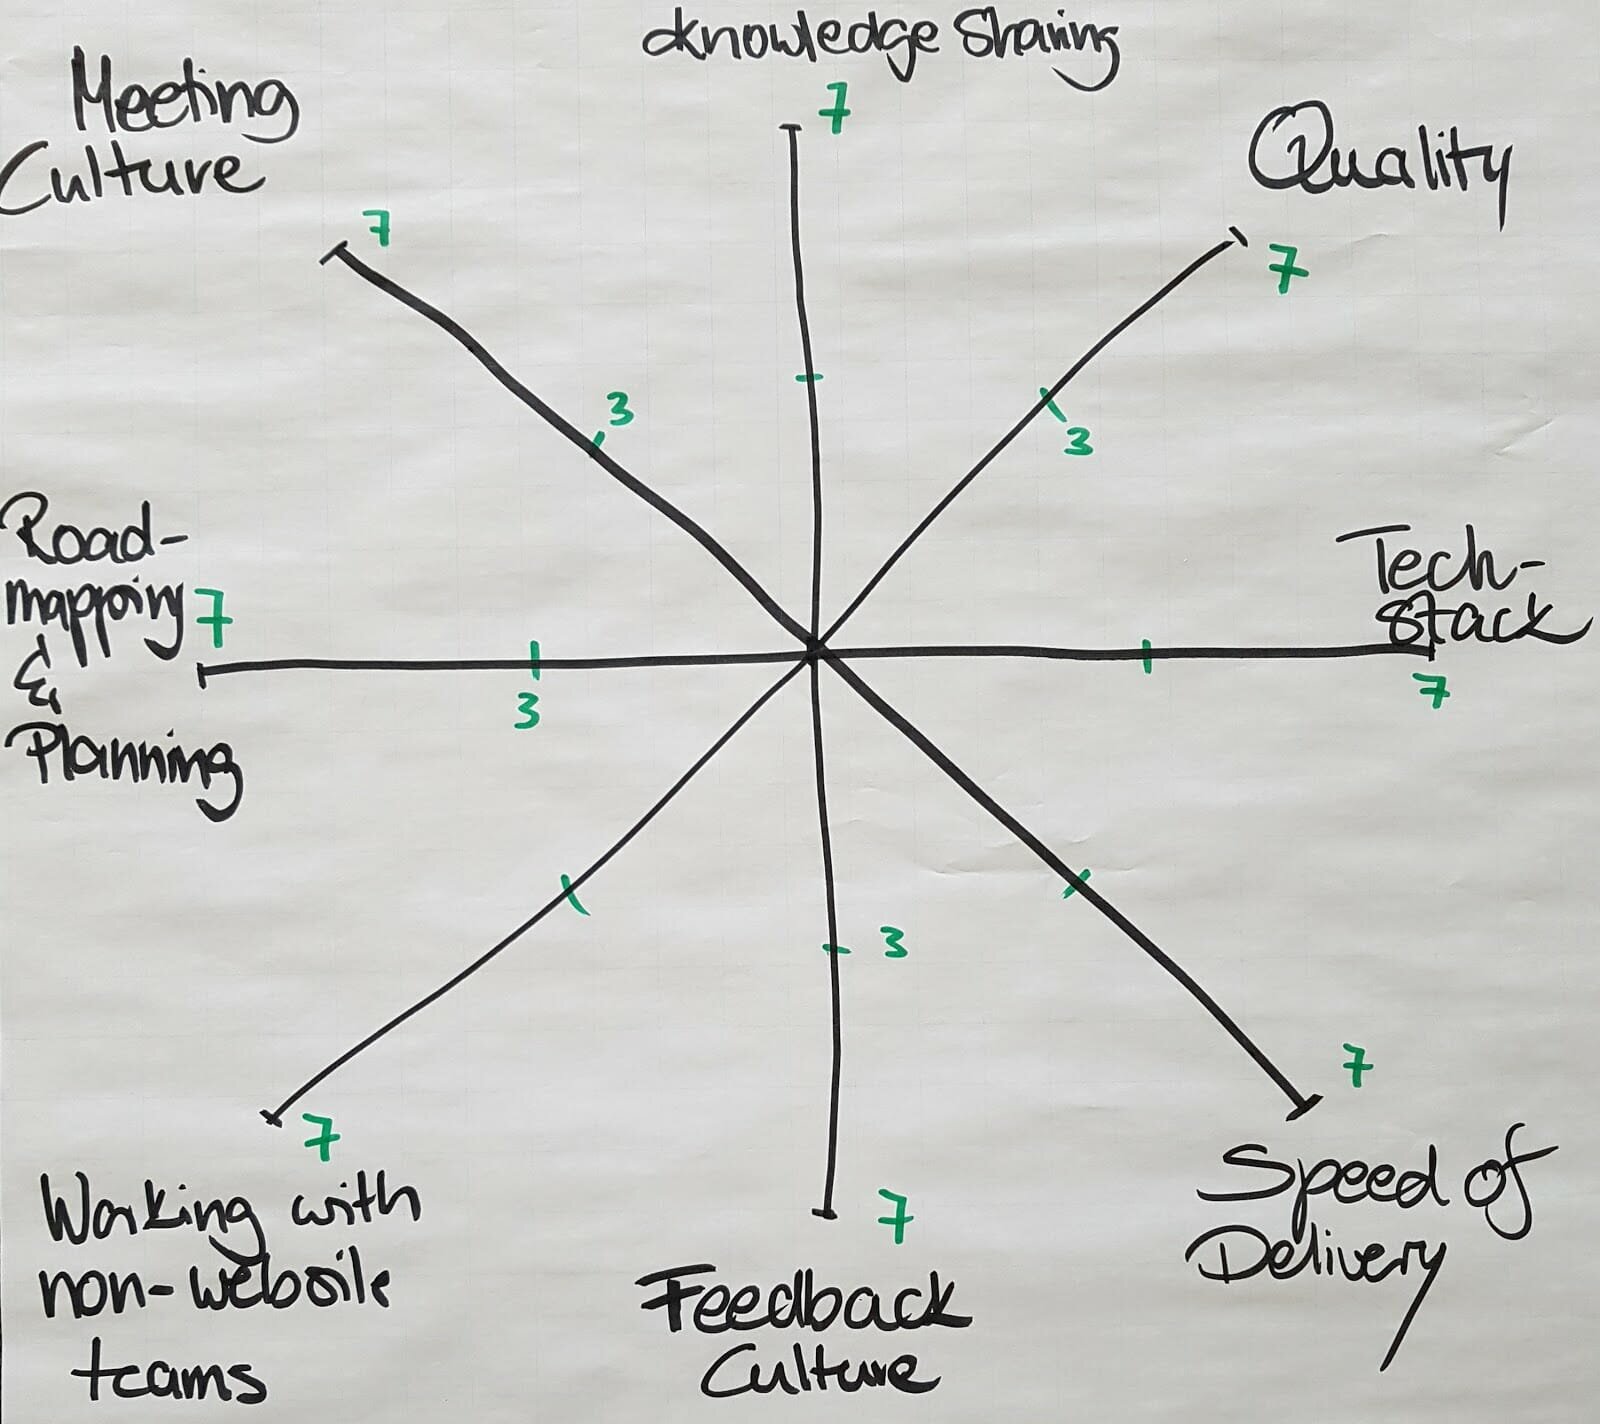 Knowledge Sharing
7
Meeting
Culture
7
3
Quality
7
3
Tech-
Stack
7
Road-
mapping
&
Planning
7
3
Working with
non-website
teams
7
3
Feedback
Culture
7
Speed of
Delivery
7